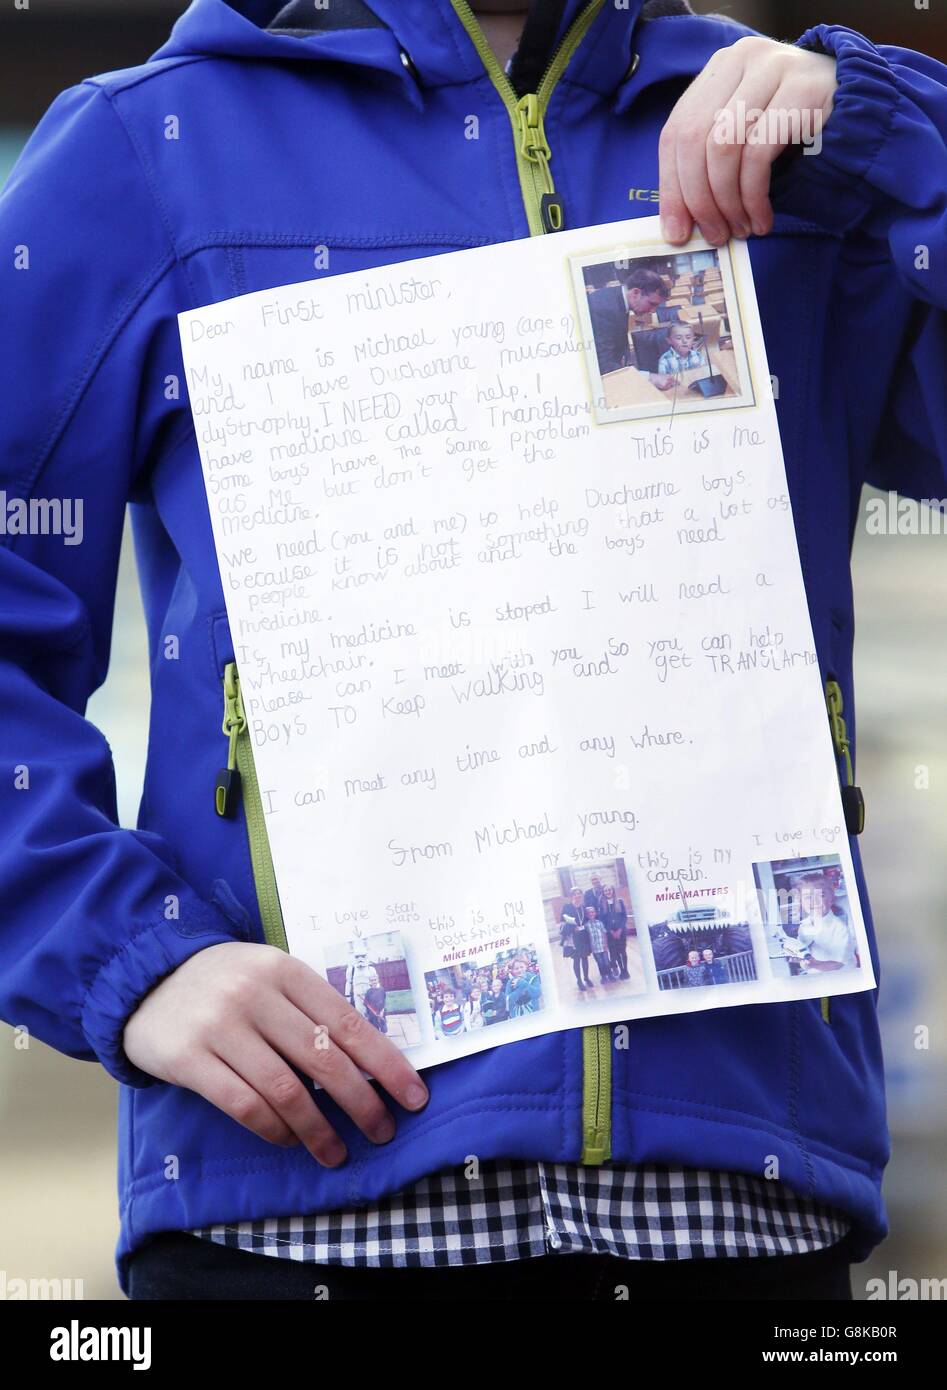 ICE
Dear First minister,
My name is Michael young (age 9)
and I have Duchenne muscular
dystrophy. I NEED your help! I
have medicine called Translarna.
Some boys have The same problem
as me but don't get the
medicine.
This is me
we need (you and me) to help Duchenne boys.
because it is not something that a lot of
people know about and the boys need
medicine.
If my medicine is stoped I will need a
wheelchair.
please can I meet with you so you can help
Boys TO keep walking and get TRANSLarna
I can meet any time and any where.
From Michael young.
I love star
wars
this is my
best friend.
MIKE MATTERS
my family.
this is my
cousin.
MIKE MATTERS
I love lego
alamy
Image ID: G8KB0R
www.alamy.com